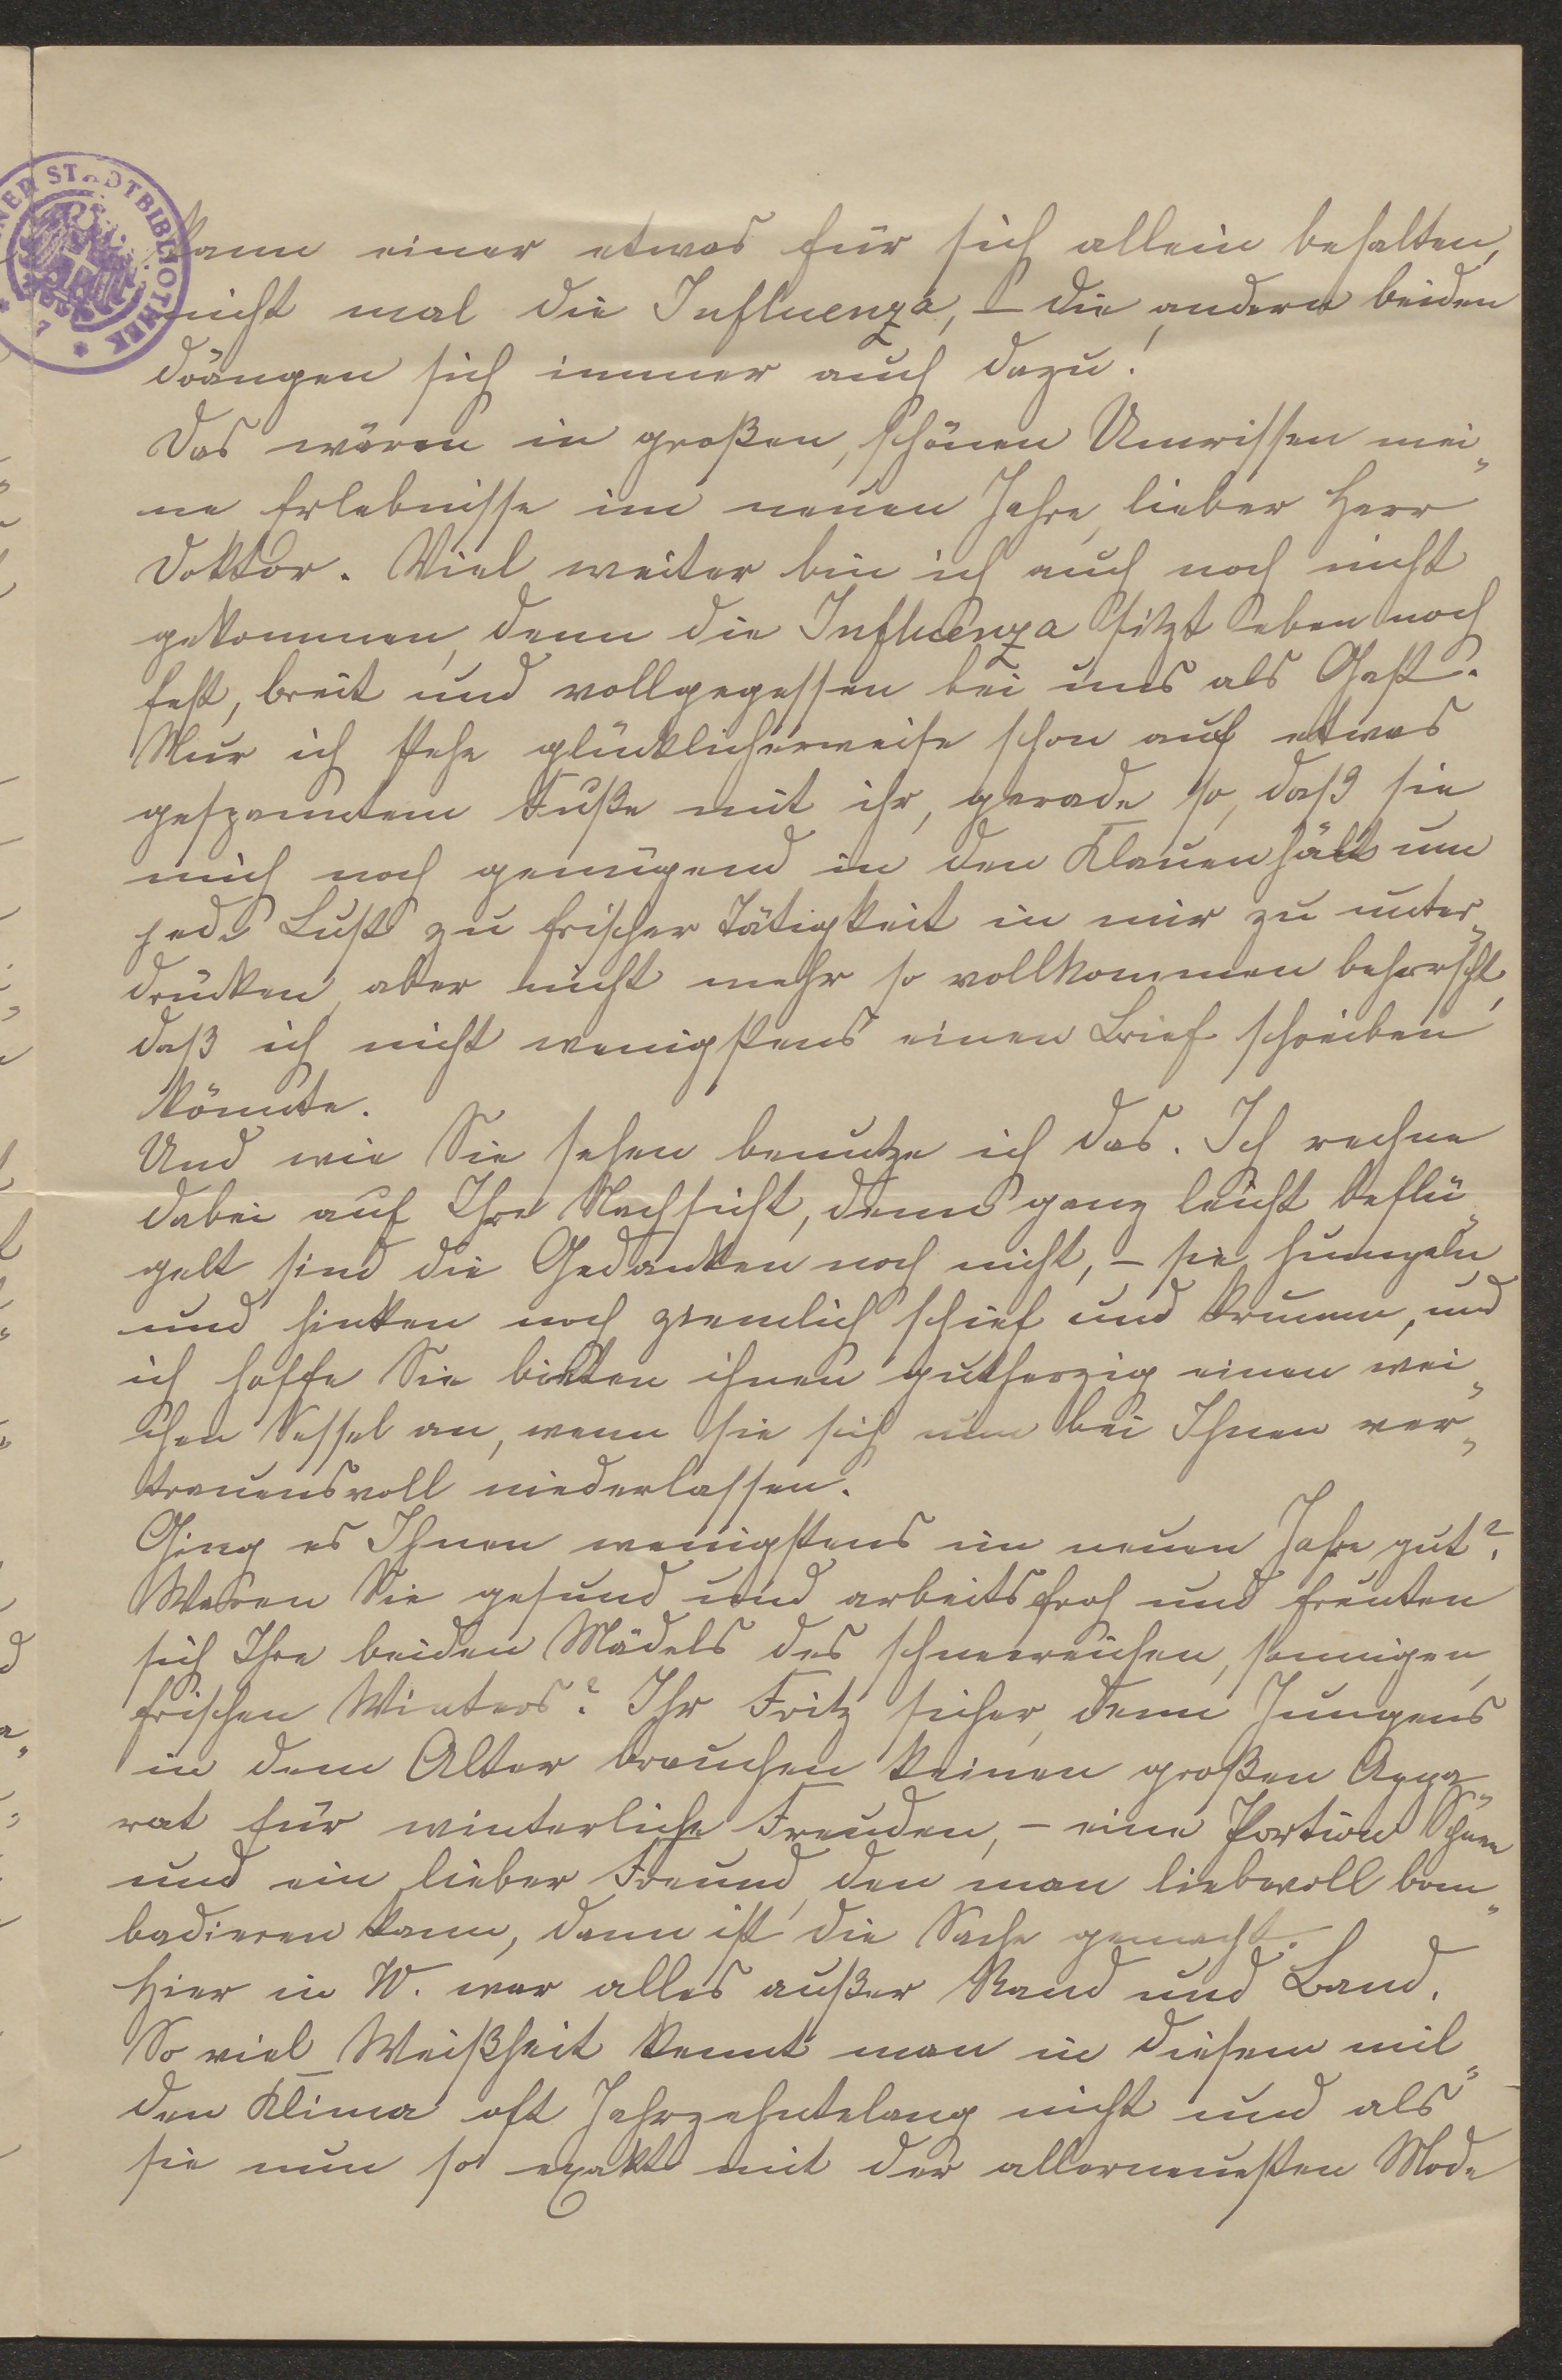 kann einer etwas für sich allein behalten,
nicht mal die Influenza, – die andern beiden
drängen sich immer auch dazu!
Das wären in großen, schönen Umrissen mei„
ne Erlebnisse im neuen Jahre, lieber Herr
Doktor. Viel weiter bin ich auch noch nicht
gekommen, denn die Influenza sitzt eben noch
fest, breit und vollgegessen bei uns als Gast.
Nur ich stehe glücklicherweise schon auf etwas
gespanntem Fuße mit ihr, gerade so, daß sie
mich noch genügend in den Klauen hält um
jede Lust zu frischer Tätigkeit in mir zu unter„
drücken, aber nicht mehr so vollkommen beherrscht,
daß ich nicht wenigstens einen Brief schreiben
könnte.
Und wie Sie sehen benutze ich das. Ich rechne
dabei auf Ihre Nachsicht, denn ganz leicht beflü„
gelt sind die Gedanken noch nicht, – sie humpeln
und hinken noch ziemlich schief und krumm, und
ich hoffe Sie bieten ihnen gutherzig einen wei„
chen Sessel an, wenn sie sich nun bei Ihnen ver„
trauensvoll niederlassen.
Ging es Ihnen wenigstens im neuen Jahre gut?
Waren Sie gesund und arbeitsfroh und freuten
sich Ihre beiden Mädels des schneereichen, sonnigen,
frischen Winters? Ihr Fritz sicher, denn Jungens
in dem Alter brauchen keinen großen Appa„
rat für winterliche Freuden, – eine Portion Schnee
und ein lieber Freund, den man liebevoll bom„
badieren kann, dann ist die Sache gemacht.
Hier in W. war alles außer Rand und Band.
So viel Weißheit kennt man in diesem mil„
den Klima oft Jahrzehntelang nicht und als
sie nun so exakt mit der allerneuesten Mode
STADTBIBLIOTHEK